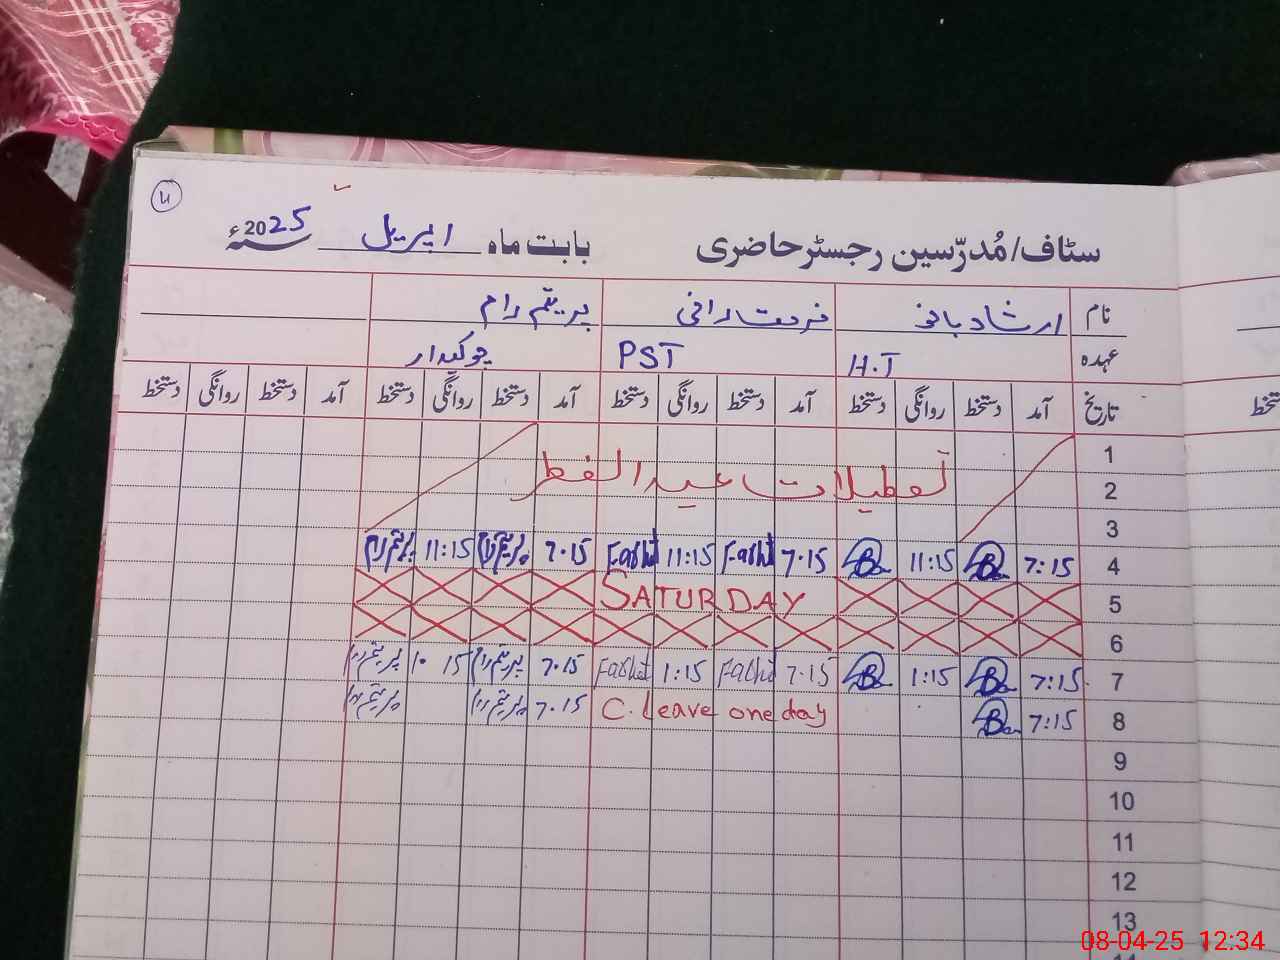 11
سٹاف/مُدرّسین رجسٹر حاضری بابت ماہ اپریل سنہ 2025ء
نام ارشاد بانو فرحت رافی پریتم رام
عہدہ H.T PST چوکیدار
تاریخ آمد دستخط روانگی دستخط آمد دستخط روانگی دستخط آمد دستخط روانگی دستخط آمد دستخط روانگی دستخط
1
2 تعطیلات عید الفطر
3
4 7:15 11:15 7.15 Farhat 11:15 Farhat 7.15 پریتم رام 11:15 پریتم رام
5 SATURDAY
6
7 7:15 1:15 7.15 Farhat 1:15 Farhat 7.15 پریتم رام 1. 15 پریتم رام
8 7:15 C. leave one day 7.15 پریتم رام پریتم رام
9
10
11
12
13
دستخط
08-04-25 12:34